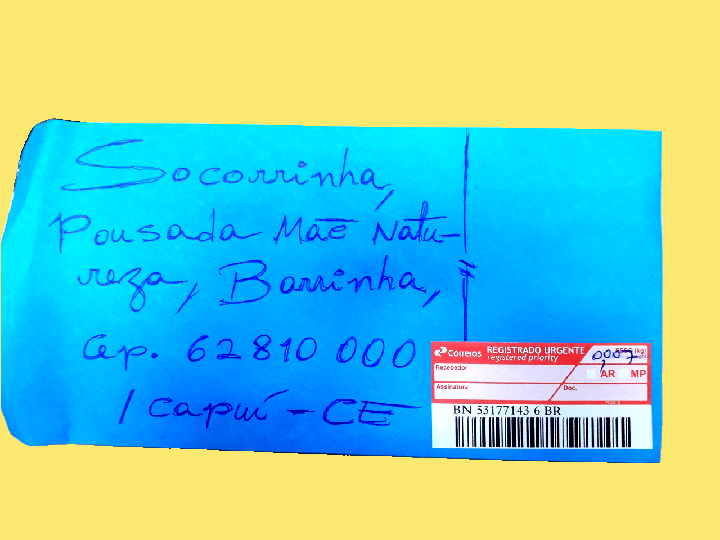 Socorrinha,
Pousada Mãe Natu-
reza, Barrinha,
Cep. 62810 000
Icapuí - CE
Correios REGISTRADO URGENTE
registered priority
0,007
Recebedor
AR MP
Assinatura Doc.
BN 53177143 6 BR